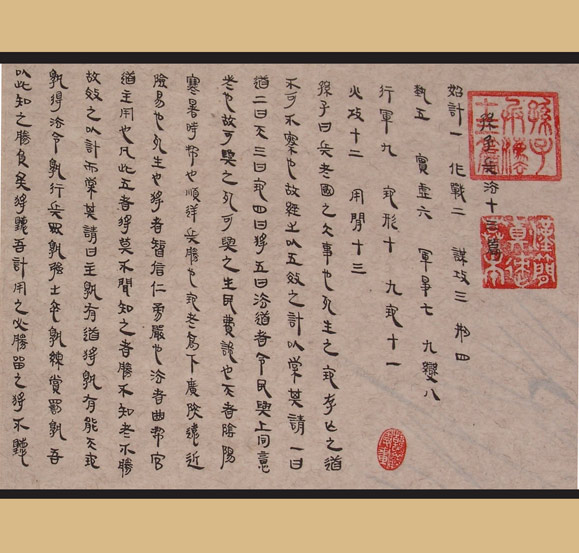 孫子兵法十三篇
始計一 作戰二 謀攻三 形四
埶五 實虛六 軍爭七 九變八
行軍九 地形十 九地十一
火攻十二 用間十三
孫子曰兵者國之大事也死生之地存亡之道
不可不察也故經之以五效之計以索其請一曰
道二曰天三曰地四曰將五曰法道者令民與上同意
者也故可與之死可與之生民弗詭也天者陰陽
寒暑時制也順逆兵勝也地者高下廣陜遠近
險易也死生也將者智信仁勇嚴也法者曲制官
道主用也凡此五者將莫不聞知之者勝不知者不勝
故效之以計而索其請曰主孰有道將孰有能天地
孰得法令孰行兵眾孰強士卒孰練賞罰孰吾
以此知之勝負矣將聽吾計用之必勝留之將不聽